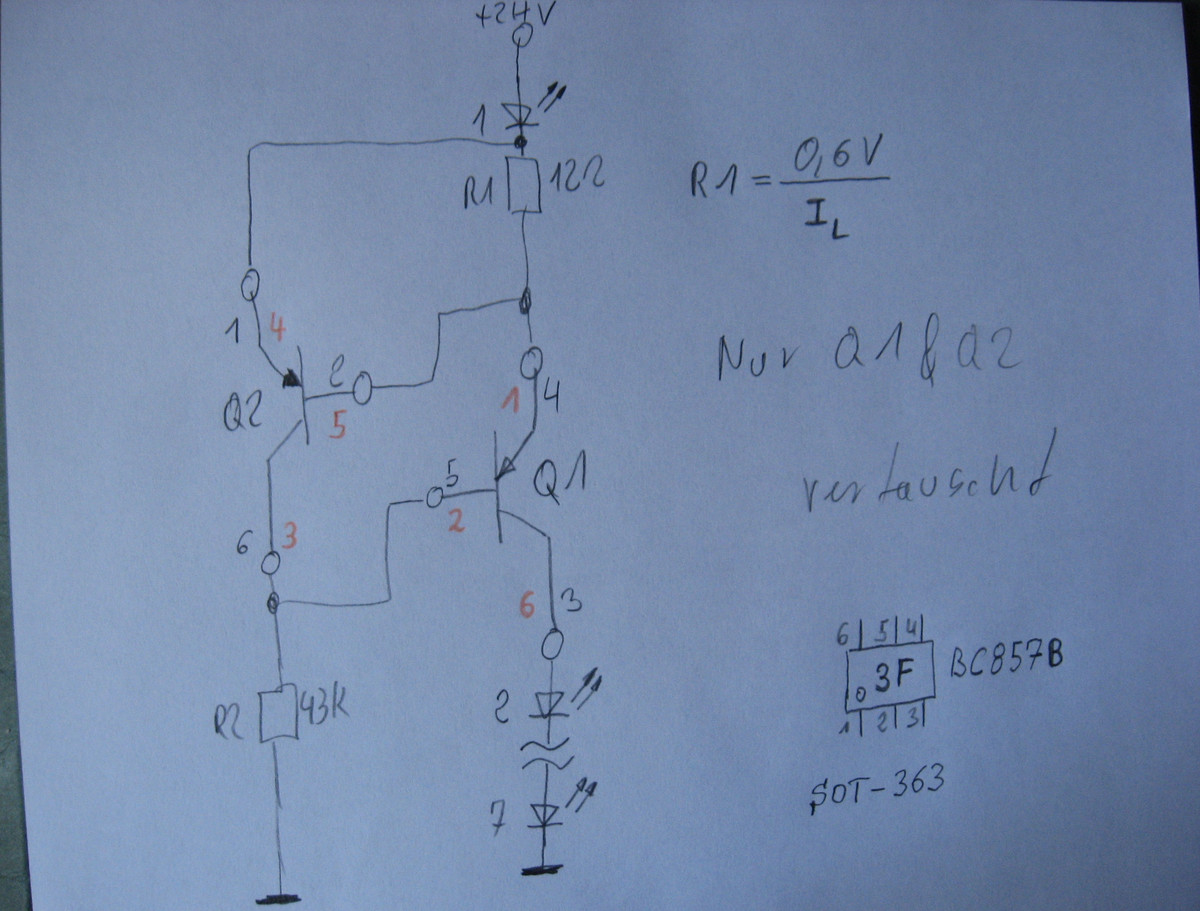 +24V
1
R1 12Ω
R1 = 0,6V
I_L
1 4
Q2
2
5
1 4
Q1
5
2
6 3
6 3
Nur Q1 & Q2
vertauscht
R2 43K
2
7
6 5 4
3F BC857B
1 2 3
SOT-363